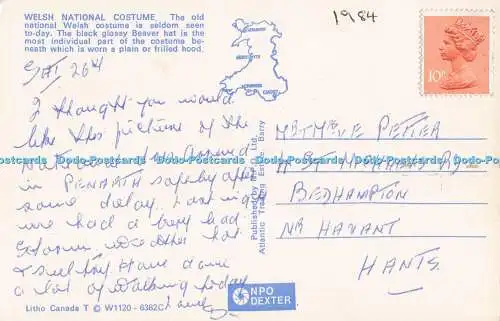 WELSH NATIONAL COSTUME. The old
national Welsh costume is seldom seen
to-day. The black glossy Beaver hat is the
most individual part of the costume be-
neath which is worn a plain or frilled hood.
1984
10P
SAT 26th
I thought you would
like this picture of the
National
arrived
in PENARTH safely after
some delay. Last night
we had a very bad
Storm, weather hot
& sultry Have done
a lot of walking today
love
MR & MRS V. PETTER
4 ST
RD
BEDHAMPTON
NR HAVANT
HANTS.
Published by
Ltd.
Atlantic Trading Est., Barry
Dodo-Postcards Dodo-Postcards Dodo-Postcards Dodo-Postcards Dodo-Postcards
NPO
DEXTER
Litho Canada T © W1120 - 6382C